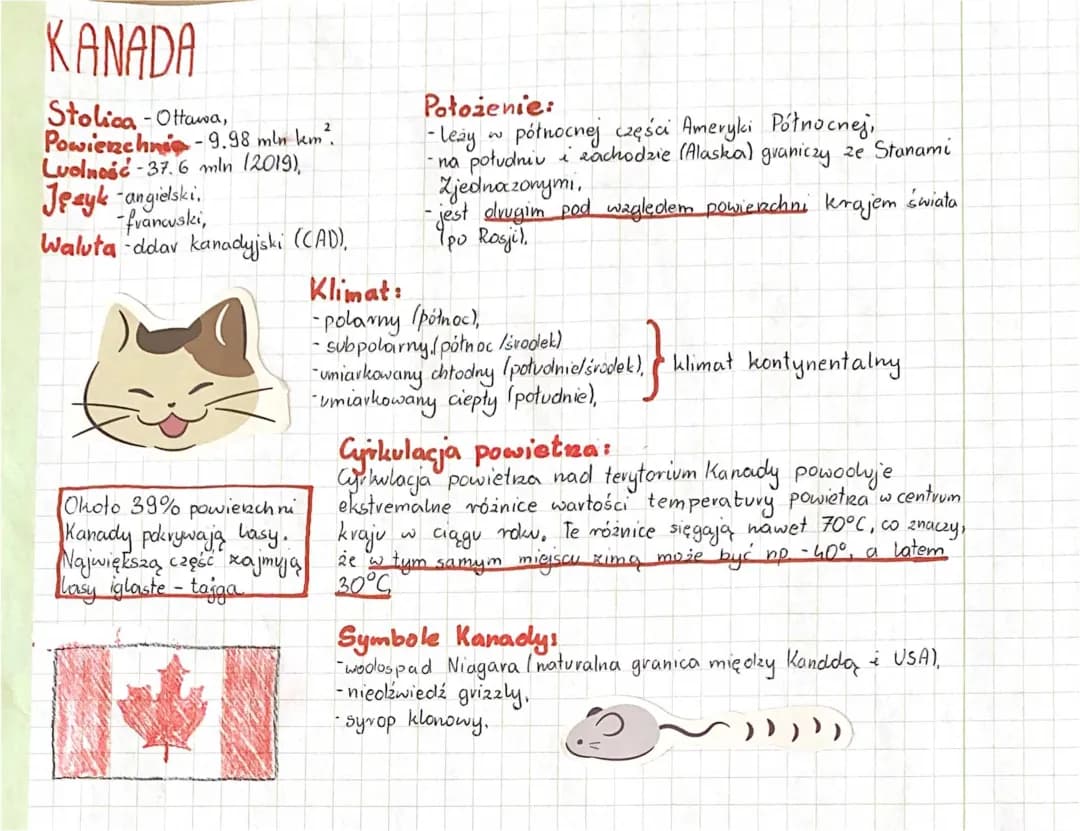 KANADA
Stolica - Ottawa,
Powierzchnia - 9.98 mln km².
Ludność - 37.6 mln (2019),
Język - angielski,
- francuski,
Waluta - dolar kanadyjski (CAD),
Położenie:
- leży w północnej części Ameryki Północnej,
- na południu i zachodzie (Alaska) graniczy ze Stanami
Zjednoczonymi,
- jest drugim pod względem powierzchni krajem świata
(po Rosji).
Klimat:
- polarny (północ),
- subpolarny, (północ/środek)
- umiarkowany chłodny (południe/środek),
- umiarkowany ciepły (południe),
} klimat kontynentalny
Cyrkulacja powietrza:
Cyrkulacja powietrza nad terytorium Kanady powoduje
ekstremalne różnice wartości temperatury powietrza w centrum
kraju w ciągu roku. Te różnice sięgają nawet 70°C, co znaczy,
że w tym samym miejscu zimą może być np -40°, a latem
30°C
Około 39% powierzchni
Kanady pokrywają lasy.
Największą część zajmują
lasy iglaste - tajga
Symbole Kanady:
- wodospad Niagara (naturalna granica między Kanddą i USA),
- niedźwiedź grizzly,
- syrop klonowy.